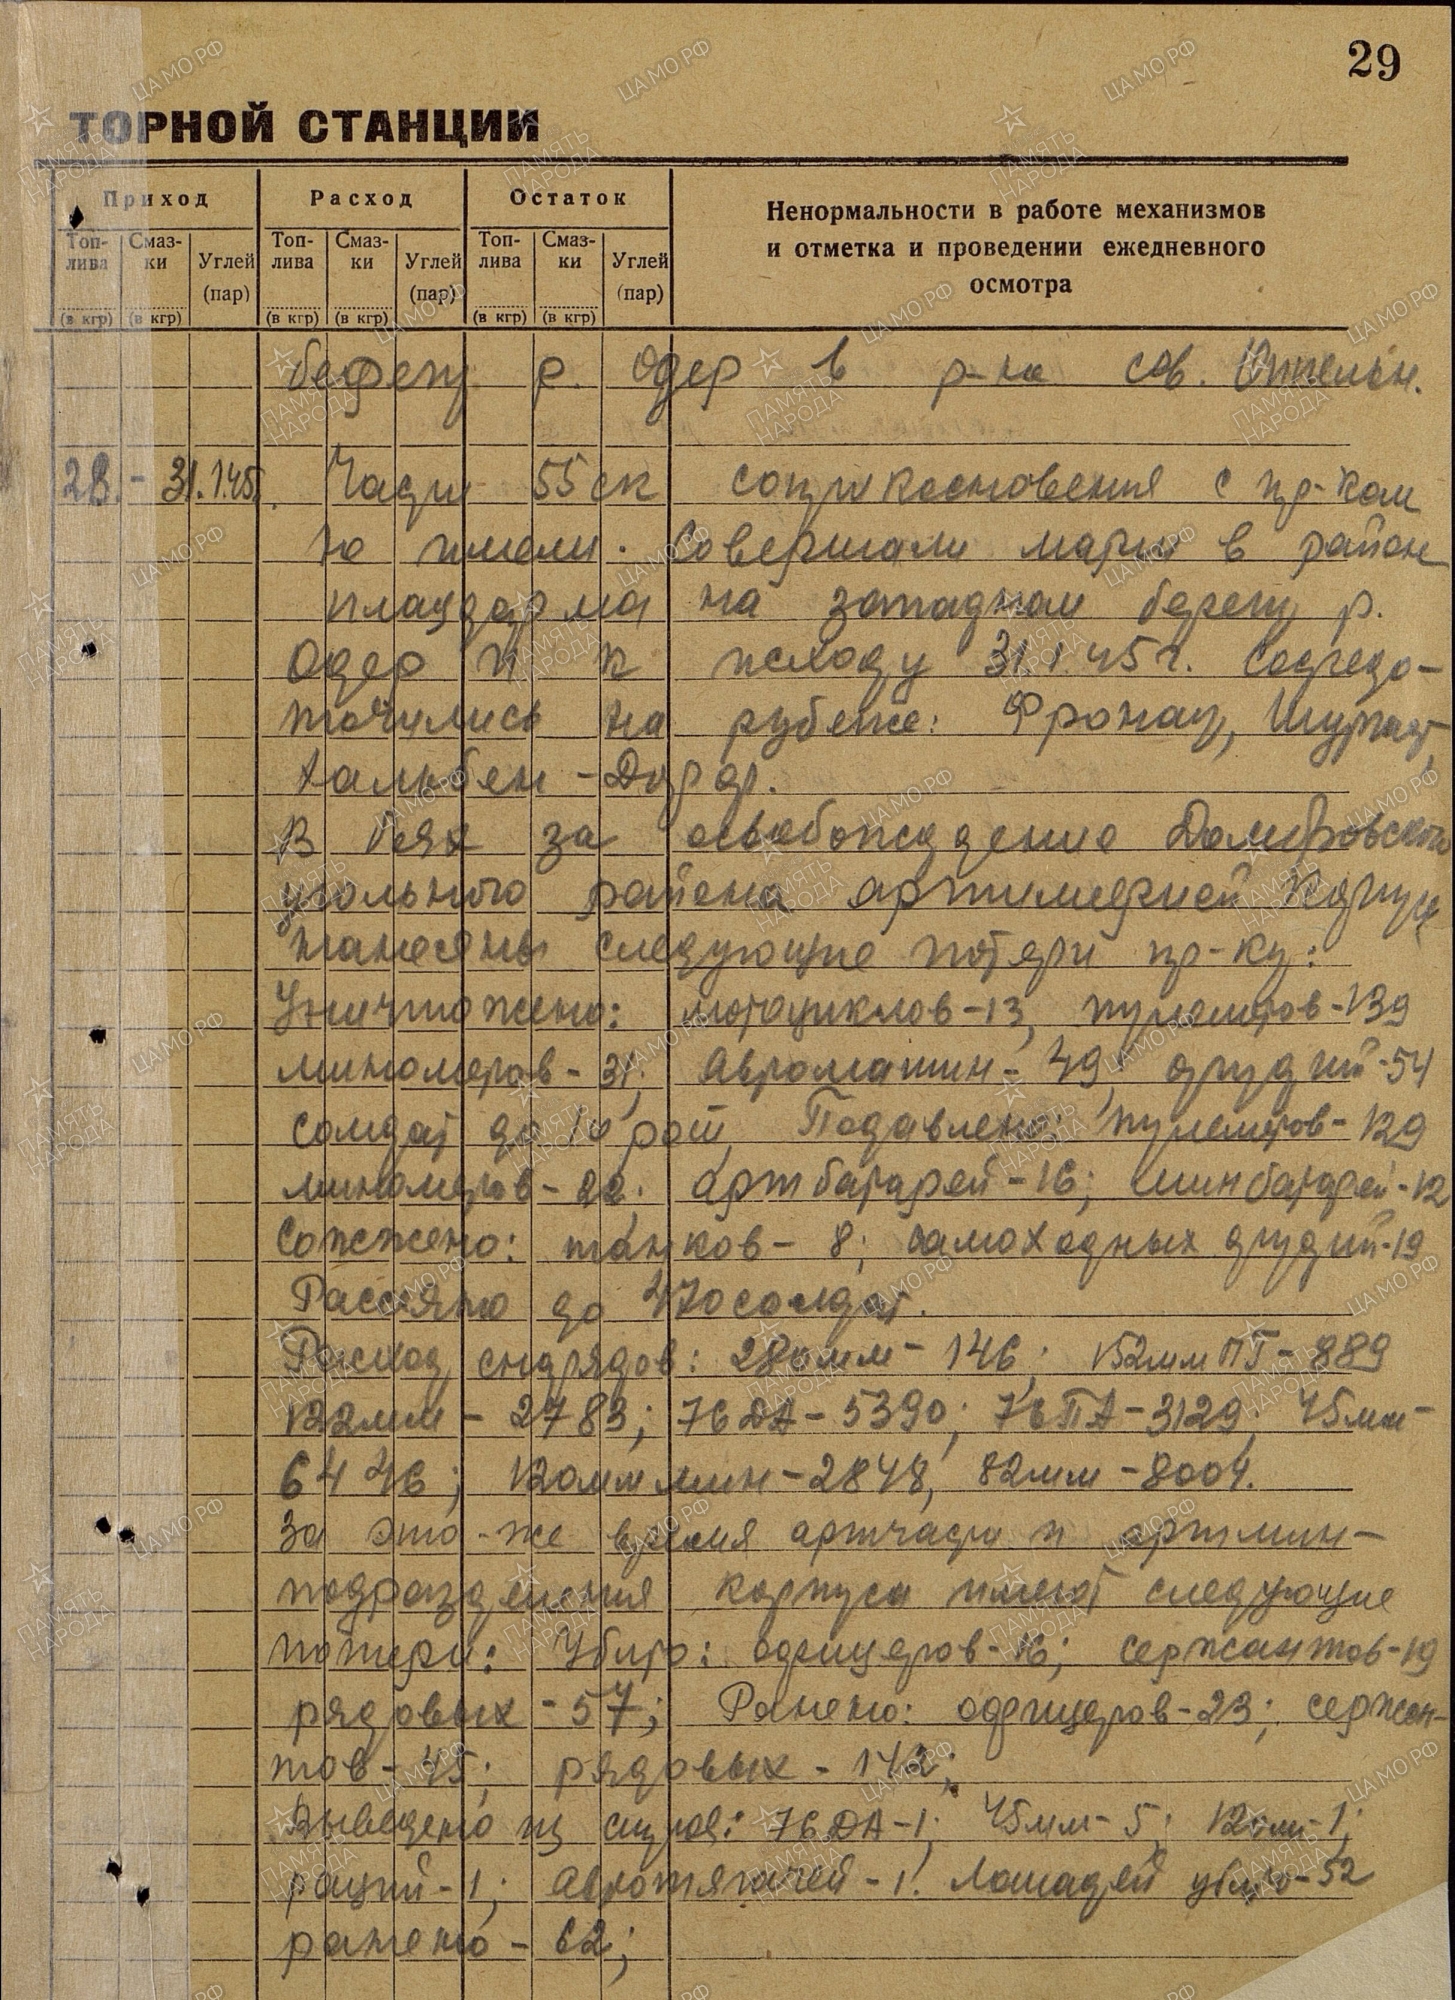 29
ТОРНОЙ СТАНЦИИ
Приход Расход Остаток Ненормальности в работе механизмов и отметка и проведении ежедневного осмотра
Топлива (в кгр) Смазки (в кгр) Углей (пар) Топлива (в кгр) Смазки (в кгр) Углей (пар) Топлива (в кгр) Смазки (в кгр) Углей (пар)
берегу р. Одер в р-не сев.
28. - 31.1.45. Части 55 ск соприкосновения с пр-ком
не имели. Совершали марш в район
плацдарма на западном берегу р.
Одер и к исходу 31.1.45г. сосредо-
точились на рубеже: Фронау,
Хальбен-Дорф.
В боях за освобождение Домбровского
угольного района артиллерией корпуса
нанесены следующие потери пр-ку:
Уничтожено: мотоциклов-13, пулеметов-139
минометов-31; Автомашин-49; орудий-54
солдат до 10 рот, Подавлено: пулеметов-129
минометов-22; артбатарей-16; минбатарей-12
Сожжено: танков-8; самоходных орудий-19
Рассеяно до 470 солдат.
Расход снарядов: 280мм-146; 152мм ПГ-889
122мм-2783; 76 ДА-5390; 76 ПА-3129; 45мм-
6446; 120мм мин-2848, 82мм-8004.
За это-же время артчасти и артмин-
подразделения корпуса имеют следующие
потери: Убито: офицеров-16; сержантов-19
рядовых-57; Ранено: офицеров-23; сержан-
тов-45; рядовых-142;
Выведено из строя: 76 ДА-1; 45мм-5; 120мм-1;
раций-1; автотягачей-1. Лошадей убито-52
ранено-62;